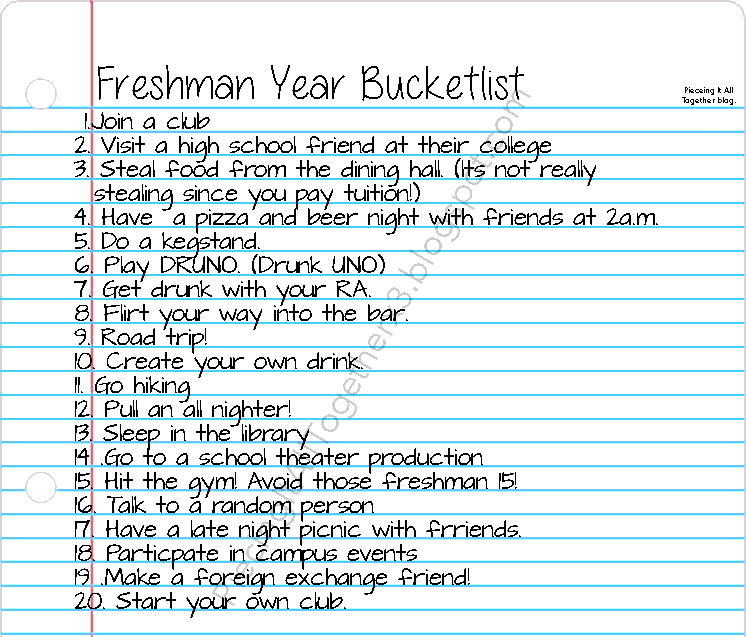 Freshman Year Bucketlist
Pieceing It All
Together blog.
1.Join a club
2. Visit a high school friend at their college
3. Steal food from the dining hall. (Its not really
stealing since you pay tuition!)
4. Have a pizza and beer night with friends at 2a.m.
5. Do a kegstand.
6. Play DRUNO. (Drunk UNO)
7. Get drunk with your RA.
8. Flirt your way into the bar.
9. Road trip!
10. Create your own drink.
11. Go hiking
12. Pull an all nighter!
13. Sleep in the library
14 .Go to a school theater production
15. Hit the gym! Avoid those freshman 15!
16. Talk to a random person
17. Have a late night picnic with frriends.
18. Particpate in campus events
19 .Make a foreign exchange friend!
20. Start your own club.